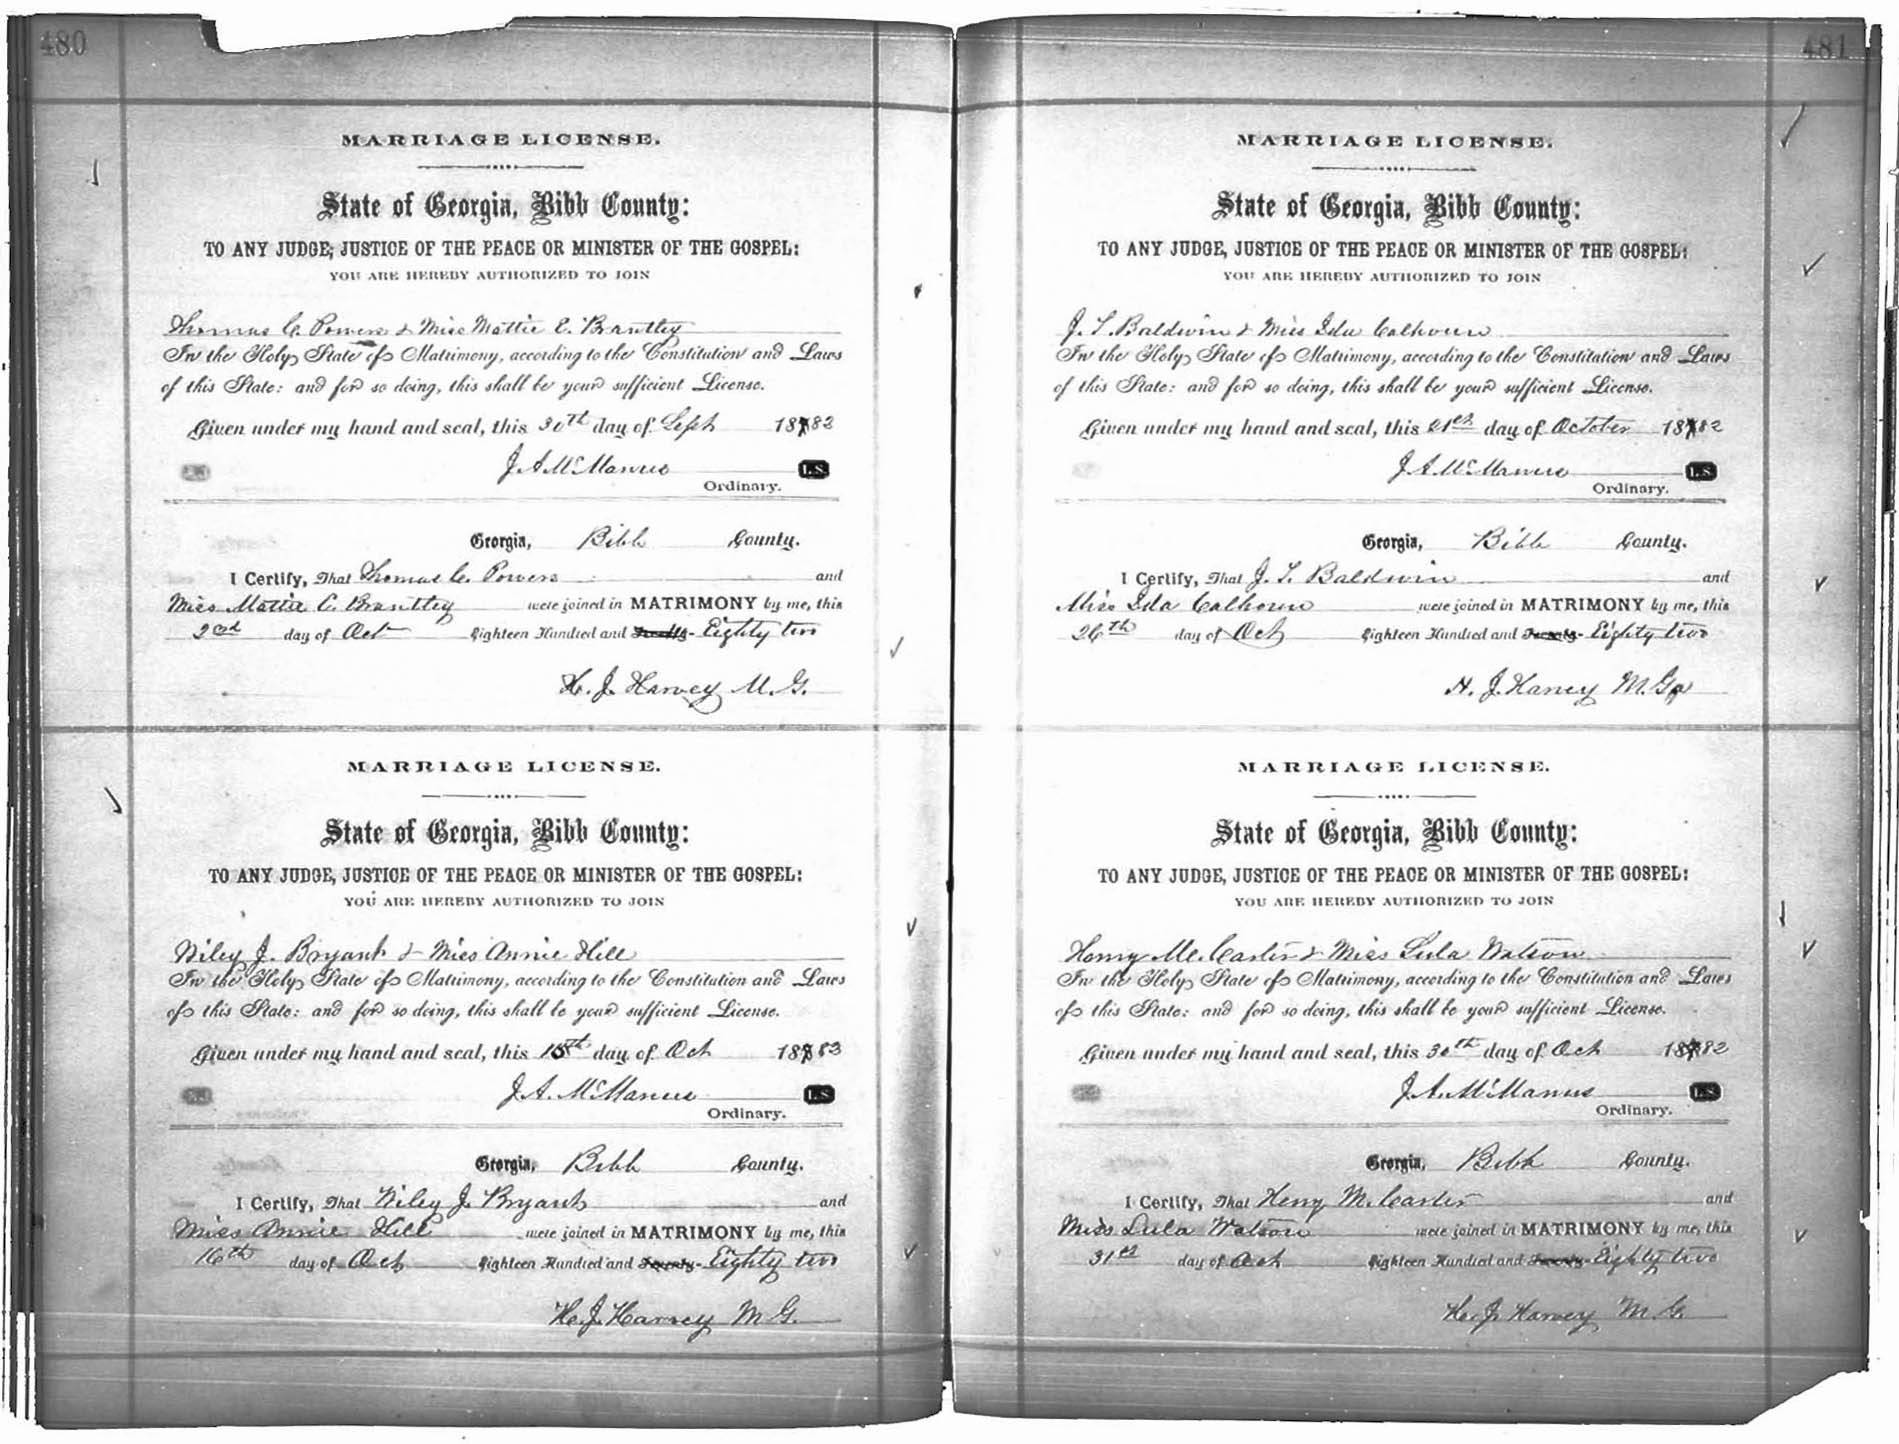 480
MARRIAGE LICENSE.
State of Georgia, Bibb County:
TO ANY JUDGE, JUSTICE OF THE PEACE OR MINISTER OF THE GOSPEL:
YOU ARE HEREBY AUTHORIZED TO JOIN
Thomas C. Powers & Miss Mattie C. Brantley
In the Holy State of Matrimony, according to the Constitution and Laws
of this State: and for so doing, this shall be your sufficient License.
Given under my hand and seal, this 30th day of Sept 1882
J. A. McManus L.S.
Ordinary.
Georgia, Bibb County.
I Certify, That Thomas C. Powers and
Miss Mattie C. Brantley were joined in MATRIMONY by me, this
2nd day of Oct Eighteen Hundred and Eighty two
H. J. Harvey M. G.
MARRIAGE LICENSE.
State of Georgia, Bibb County:
TO ANY JUDGE, JUSTICE OF THE PEACE OR MINISTER OF THE GOSPEL:
YOU ARE HEREBY AUTHORIZED TO JOIN
Wiley J. Bryant & Miss Annie Hill
In the Holy State of Matrimony, according to the Constitution and Laws
of this State: and for so doing, this shall be your sufficient License.
Given under my hand and seal, this 15th day of Oct 1883
J. A. McManus L.S.
Ordinary.
Georgia, Bibb County.
I Certify, That Wiley J. Bryant and
Miss Annie Hill were joined in MATRIMONY by me, this
16th day of Oct Eighteen Hundred and Eighty two
H. J. Harvey M. G.
481
MARRIAGE LICENSE.
State of Georgia, Bibb County:
TO ANY JUDGE, JUSTICE OF THE PEACE OR MINISTER OF THE GOSPEL:
YOU ARE HEREBY AUTHORIZED TO JOIN
J. T. Baldwin & Miss Ida Calhoun
In the Holy State of Matrimony, according to the Constitution and Laws
of this State: and for so doing, this shall be your sufficient License.
Given under my hand and seal, this 21st day of October 1882
J. A. McManus L.S.
Ordinary.
Georgia, Bibb County.
I Certify, That J. T. Baldwin and
Miss Ida Calhoun were joined in MATRIMONY by me, this
26th day of Oct Eighteen Hundred and Eighty two
H. J. Harvey M. G.
MARRIAGE LICENSE.
State of Georgia, Bibb County:
TO ANY JUDGE, JUSTICE OF THE PEACE OR MINISTER OF THE GOSPEL:
YOU ARE HEREBY AUTHORIZED TO JOIN
Henry M. Carter & Miss Lula Watson
In the Holy State of Matrimony, according to the Constitution and Laws
of this State: and for so doing, this shall be your sufficient License.
Given under my hand and seal, this 30th day of Oct 1882
J. A. McManus L.S.
Ordinary.
Georgia, Bibb County.
I Certify, That Henry M. Carter and
Miss Lula Watson were joined in MATRIMONY by me, this
31st day of Oct Eighteen Hundred and Eighty two
H. J. Harvey M. G.